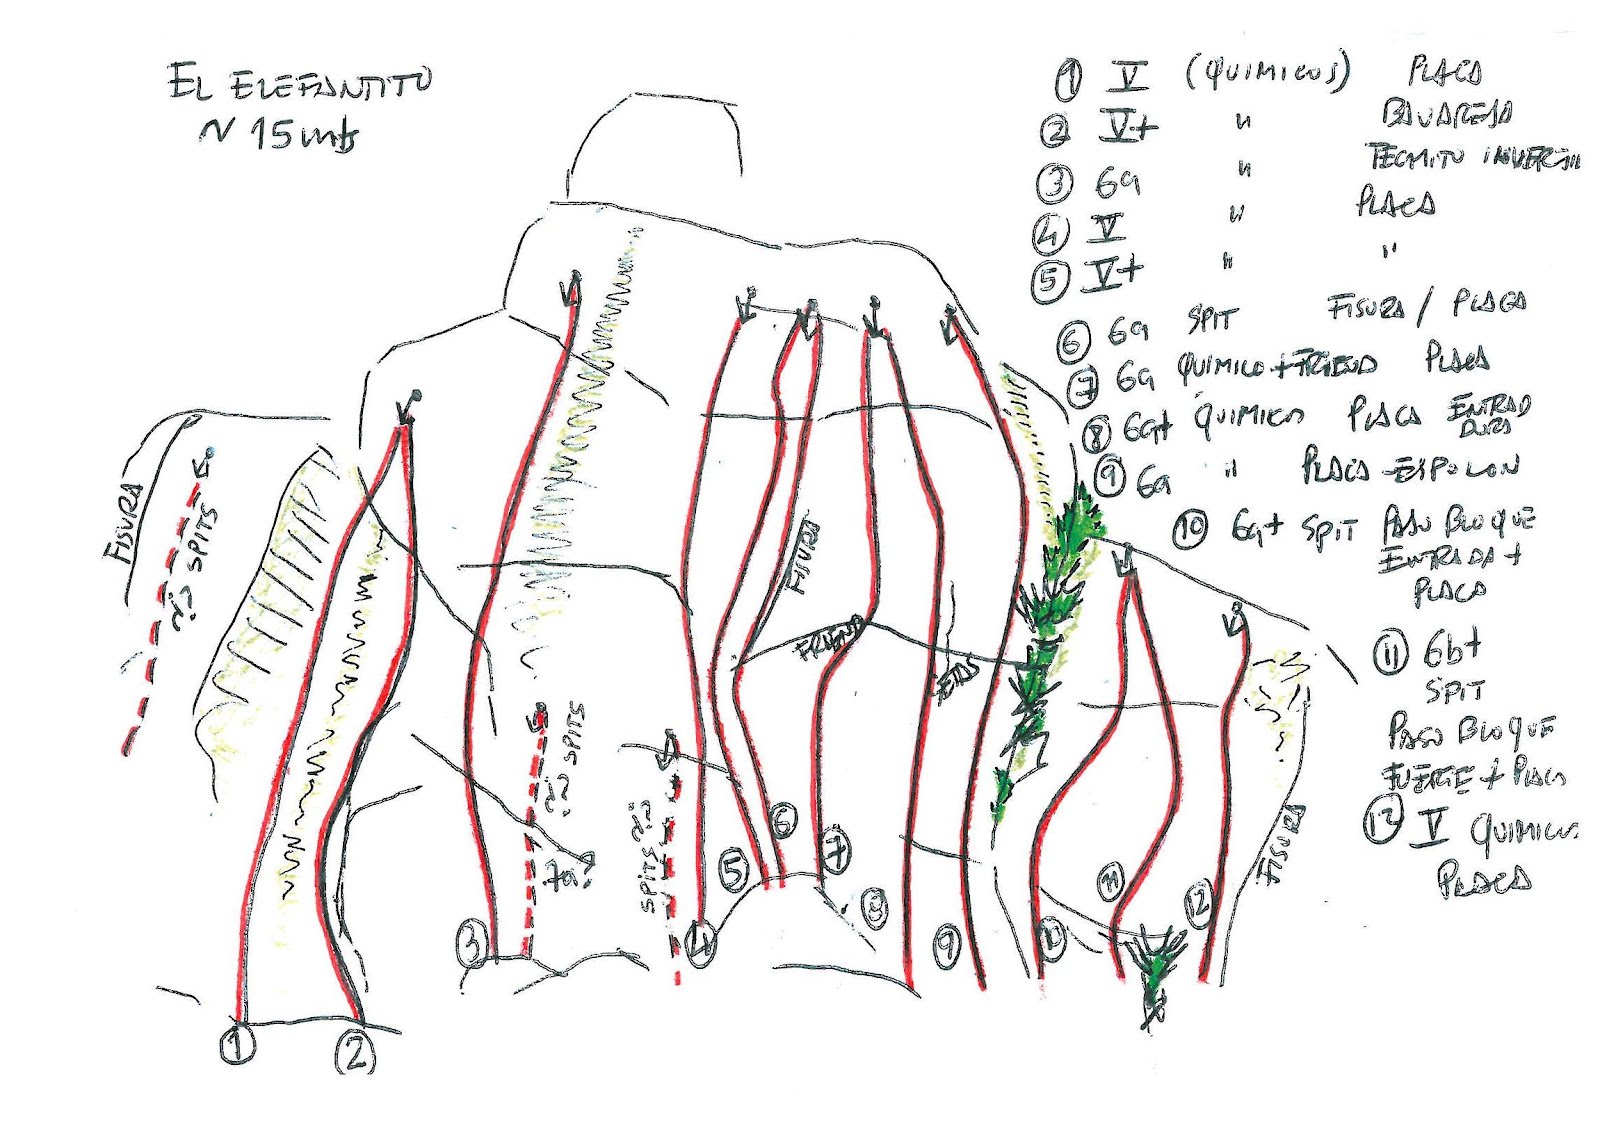 EL ELEFANTITO
~ 15 mts
① V (QUIMICOS) PLACA
② V+ " BAVARESA
③ 6a " TECHITO
④ V " PLACA
⑤ V+ " "
⑥ 6a SPIT FISURA / PLACA
⑦ 6a QUIMICO + FRIEND PLACA
⑧ 6a+ QUIMICOS PLACA ENTRADA
DURA
⑨ 6a " PLACA-ESPOLON
⑩ 6a+ SPIT PASO BLOQUE
ENTRADA +
PLACA
⑪ 6b+
SPIT
PASO BLOQUE
FUERTE + PLACA
⑫ V QUIMICOS
PLACA
FISURA
¿? SPITS
¿? SPITS
7a?
SPITS ¿?
FISURA
FRIEND
SETAS
FISURA
①
②
③
④
⑤
⑥
⑦
⑧
⑨
10
11
12